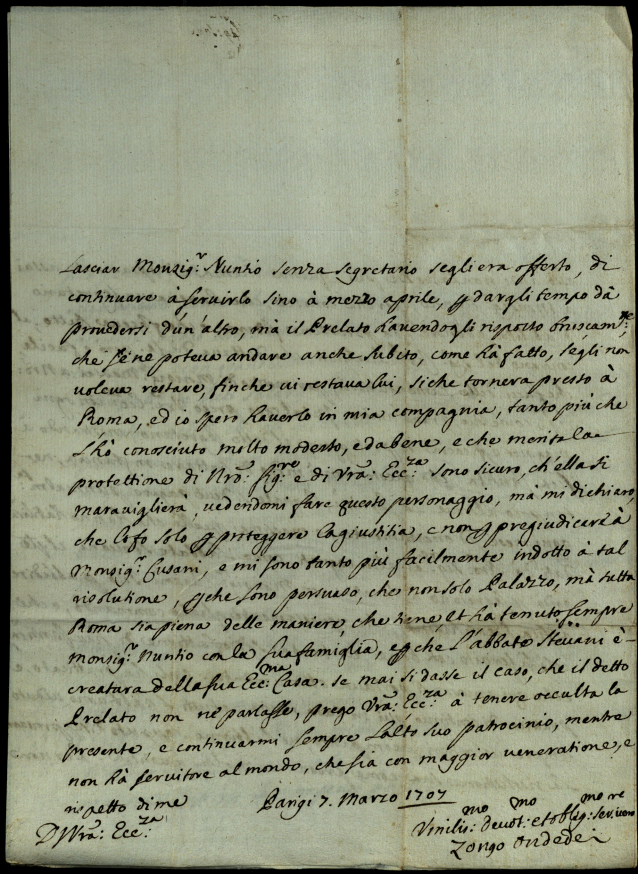 Lasciar Monsig.r Nuntio senza segretario segli era offerto, di
continuare à servirlo sino à mezzo aprile, p dargli tempo dà
provedersi d'un'altro, mà il Prelato havendogli risposto bruscam.te
che se ne poteva andare anche subito, come hà fatto, segli non
voleva restare, finche vi restava lui, siche tornera presto à
Roma, ed io spero haverlo in mia compagnia, tanto più che
l'hò conosciuto molto modesto, e da bene, e che merita la
protettione di Nro: Sig.re e di Vra: Ecc.za sono sicuro, ch'ella si
maraviglierà, vedendomi fare questo personaggio, mà mi dichiaro,
che lo fo solo p proteggere la giustitia, e non p pregiudicare à
Monsig.r Cusani, e mi sono tanto più facilmente indotto à tal
risolutione, pche sono persuaso, che non solo Palazzo, mà tutta
Roma sia piena delle maniere che tiene et hà tenuto sempre
Monsig.r Nuntio con la sua famiglia, e pche l'abbate Stevani è
creatura della sua Ecc.ma Casa. se mai si dasse il caso, che il detto
Prelato non ne parlasse, prego Vra: Ecc.za à tenere occulta la
presente, e continuarmi sempre l'alto suo patrocinio, mentre
non hà servitore al mondo, che sia con maggior veneratione, e
rispetto di me
Parigi 7. Marzo 1707
D Vra: Ecc.za
Vmilis:mo devot:mo et oblig:mo ser.re vero
Zongo Ondedei